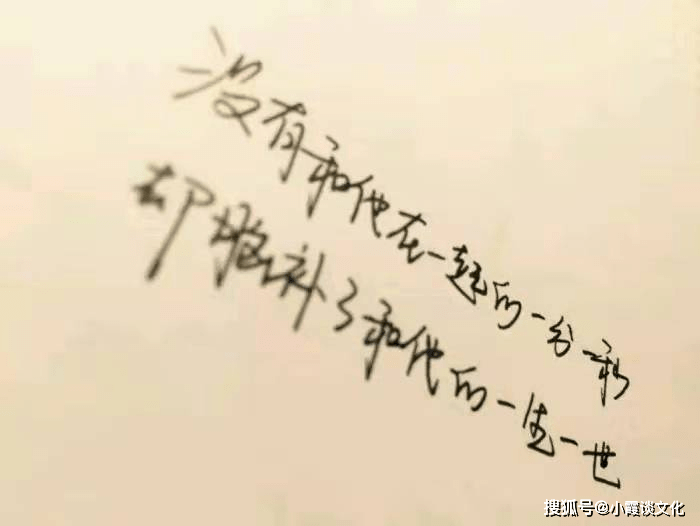 没有和他在一起的一分一秒
却脑补了和他的一生一世
搜狐号@小霞谈文化